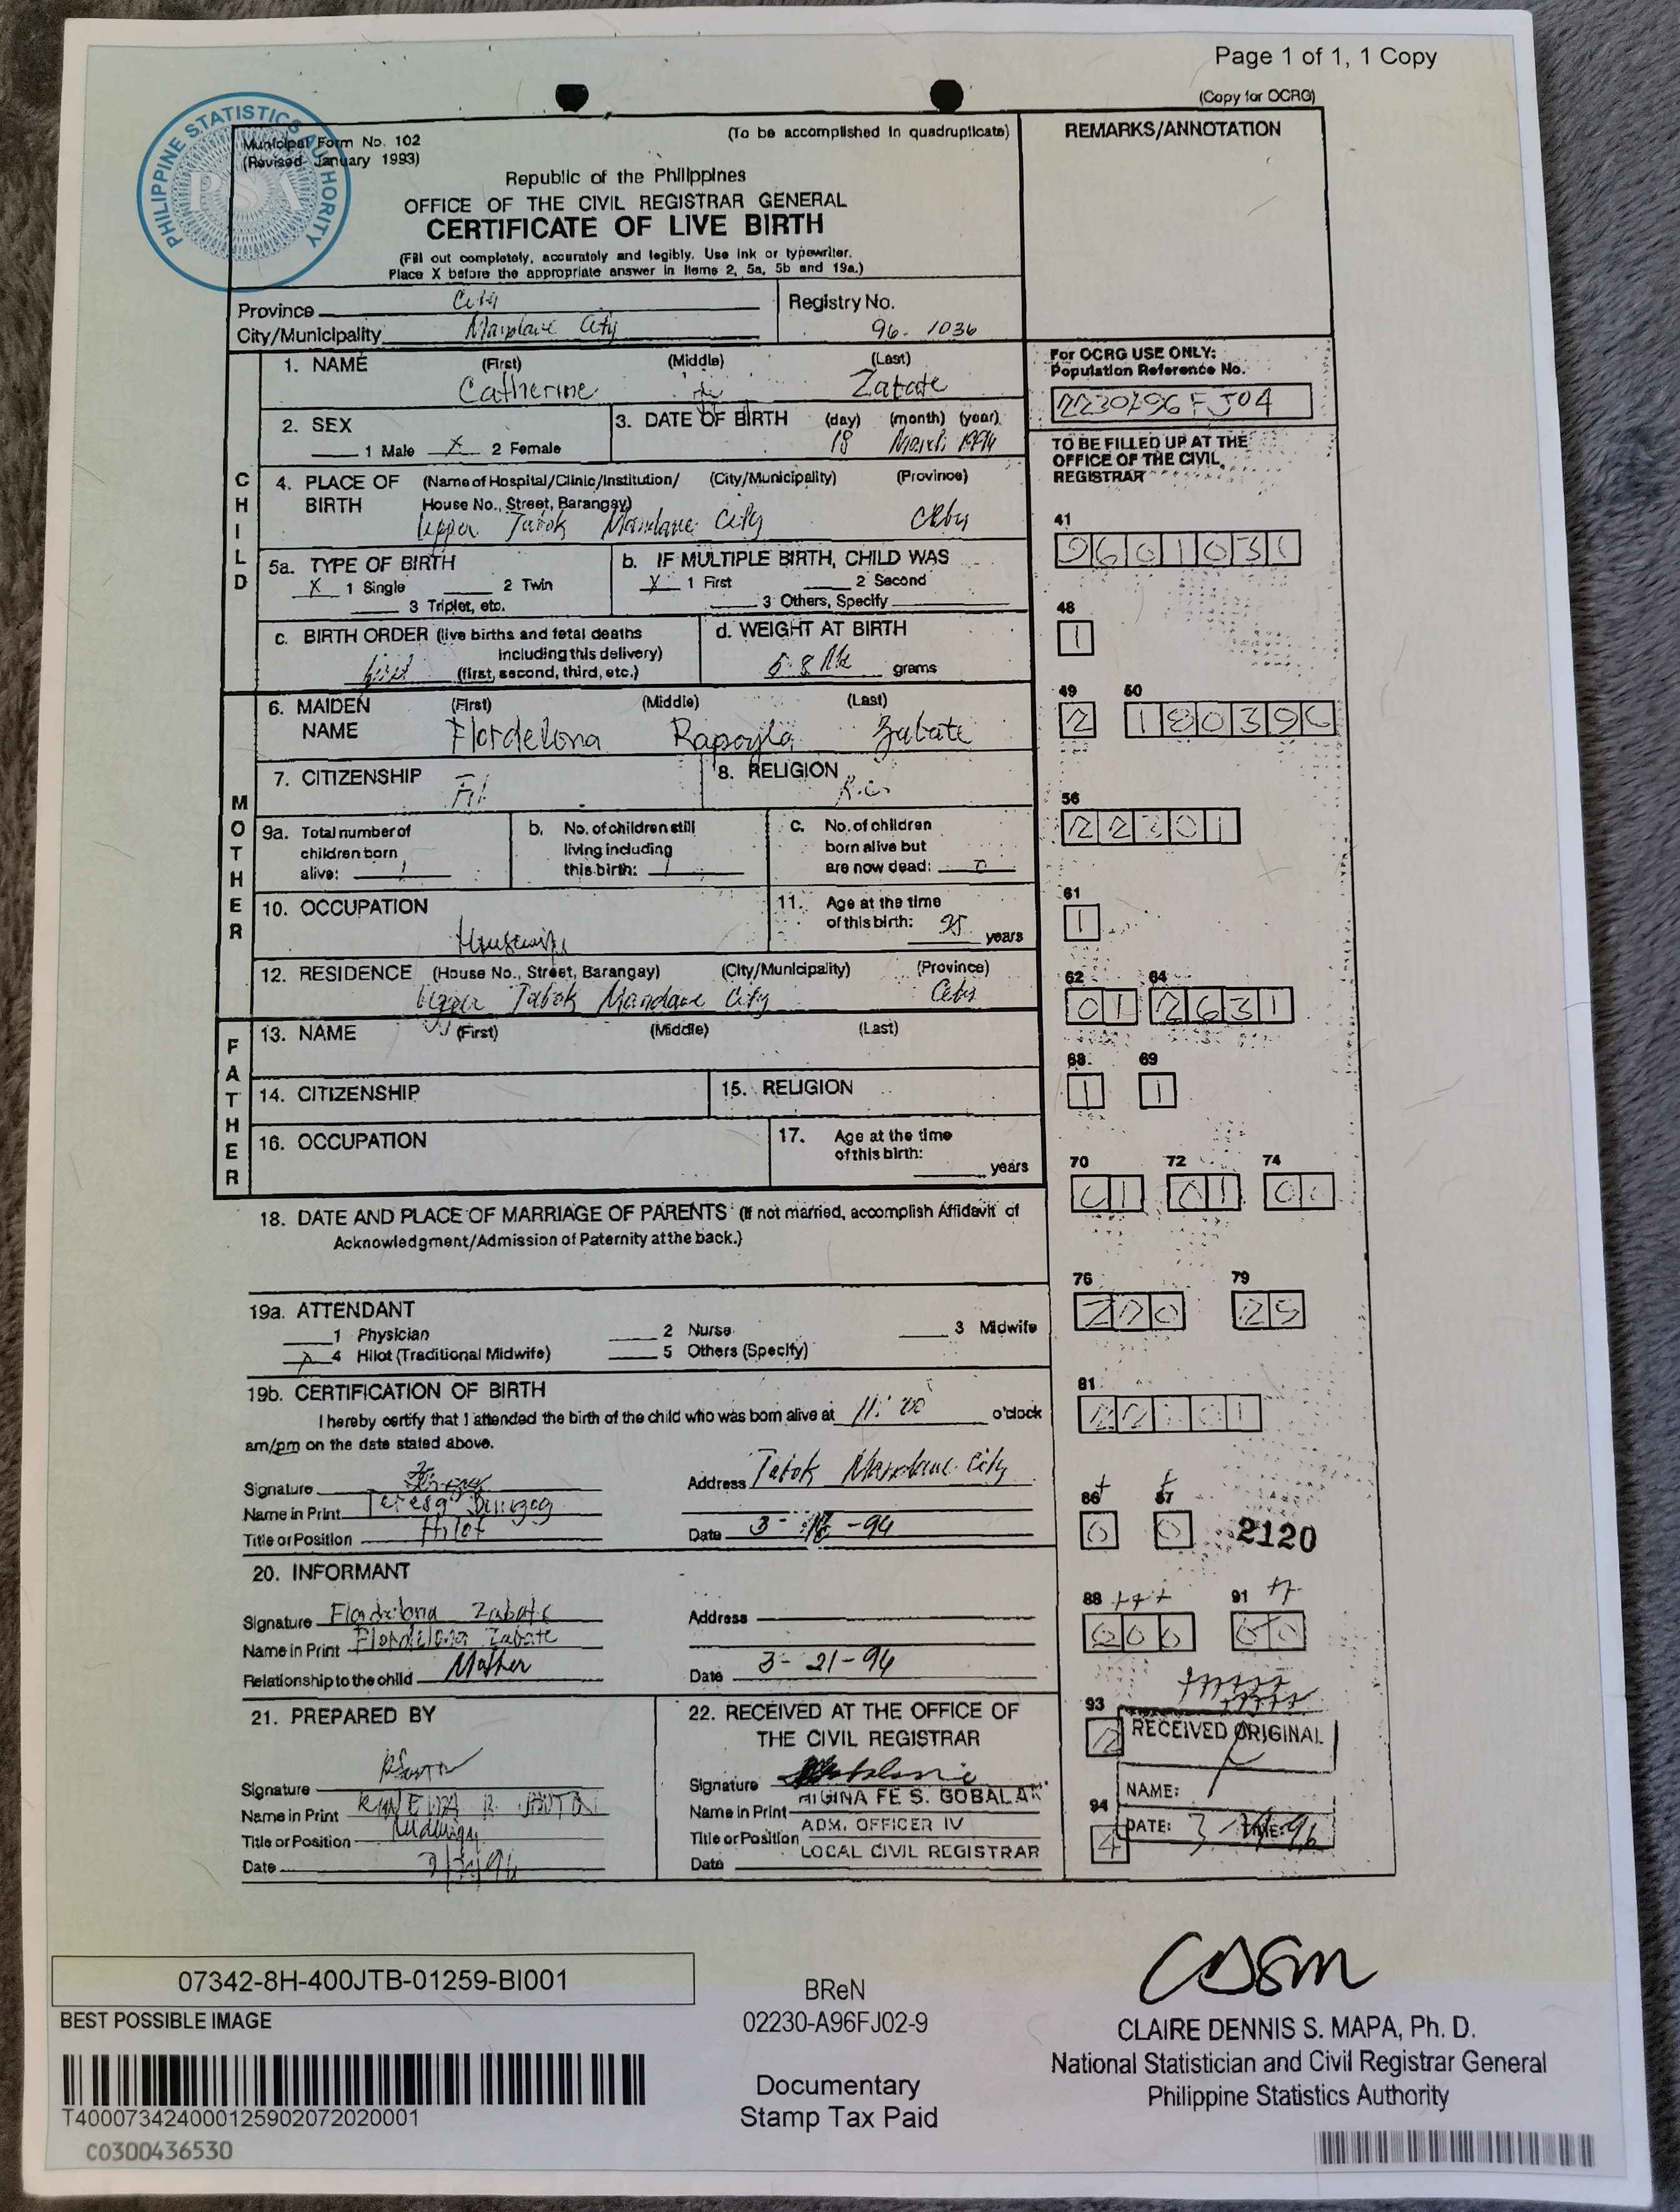 Page 1 of 1, 1 Copy
(Copy for OCRG)
PHILIPPINE STATISTICS AUTHORITY
PSA
Municipal Form No. 102
(Revised January 1993)
(To be accomplished in quadruplicate)
Republic of the Philippines
OFFICE OF THE CIVIL REGISTRAR GENERAL
CERTIFICATE OF LIVE BIRTH
(Fill out completely, accurately and legibly. Use ink or typewriter.
Place X before the appropriate answer in items 2, 5a, 5b and 19a.)
REMARKS/ANNOTATION
Province
City/Municipality Mandaue City
Registry No.
96-1036
1. NAME (First) (Middle) (Last)
Catherine Zabate
2. SEX
1 Male X 2 Female
3. DATE OF BIRTH (day) (month) (year)
18 March
4. PLACE OF BIRTH (Name of Hospital/Clinic/Institution/ House No., Street, Barangay) (City/Municipality) (Province)
Upper Tabok Mandaue City Cebu
5a. TYPE OF BIRTH
X 1 Single 2 Twin
3 Triplet, etc.
b. IF MULTIPLE BIRTH, CHILD WAS
X 1 First 2 Second
3 Others, Specify
c. BIRTH ORDER (live births and fetal deaths including this delivery)
first (first, second, third, etc.)
d. WEIGHT AT BIRTH
grams
CHILD
6. MAIDEN NAME (First) (Middle) (Last)
Flordelona Zabate
7. CITIZENSHIP
Fil
8. RELIGION
R.C.
9a. Total number of children born alive: 1
b. No. of children still living including this birth: 1
c. No. of children born alive but are now dead: 0
10. OCCUPATION
Housewife
11. Age at the time of this birth: 25 years
12. RESIDENCE (House No., Street, Barangay) (City/Municipality) (Province)
Upper Tabok Mandaue City Cebu
MOTHER
13. NAME (First) (Middle) (Last)
14. CITIZENSHIP
15. RELIGION
16. OCCUPATION
17. Age at the time of this birth: years
FATHER
18. DATE AND PLACE OF MARRIAGE OF PARENTS (If not married, accomplish Affidavit of
Acknowledgment/Admission of Paternity at the back.)
19a. ATTENDANT
1 Physician 2 Nurse 3 Midwife
X 4 Hilot (Traditional Midwife) 5 Others (Specify)
19b. CERTIFICATION OF BIRTH
I hereby certify that I attended the birth of the child who was born alive at 11:00 o'clock
am/pm on the date stated above.
Signature
Name in Print Teresa
Title or Position Hilot
Address Tabok Mandaue City
Date
20. INFORMANT
Signature Flordelona Zabate
Name in Print Flordelona Zabate
Relationship to the child Mother
Address
Date 3-21-94
21. PREPARED BY
Signature
Name in Print
Title or Position
Date
22. RECEIVED AT THE OFFICE OF
THE CIVIL REGISTRAR
Signature
Name in Print FE S. GOBALAN
Title or Position ADM. OFFICER IV
LOCAL CIVIL REGISTRAR
Date
For OCRG USE ONLY:
Population Reference No.
TO BE FILLED UP AT THE
OFFICE OF THE CIVIL
REGISTRAR
41
48
1
49 50
2 180396
56
61
1
62 64
01 2631
68 69
1 1
70 72 74
01 01
76 79
25
81
86 87
0 0
2120
88 91
93
2
RECEIVED ORIGINAL
NAME:
94
4
DATE:
07342-8H-400JTB-01259-BI001
BEST POSSIBLE IMAGE
T400073424000125902072020001
C0300436530
BReN
02230-A96FJ02-9
Documentary
Stamp Tax Paid
CLAIRE DENNIS S. MAPA, Ph. D.
National Statistician and Civil Registrar General
Philippine Statistics Authority